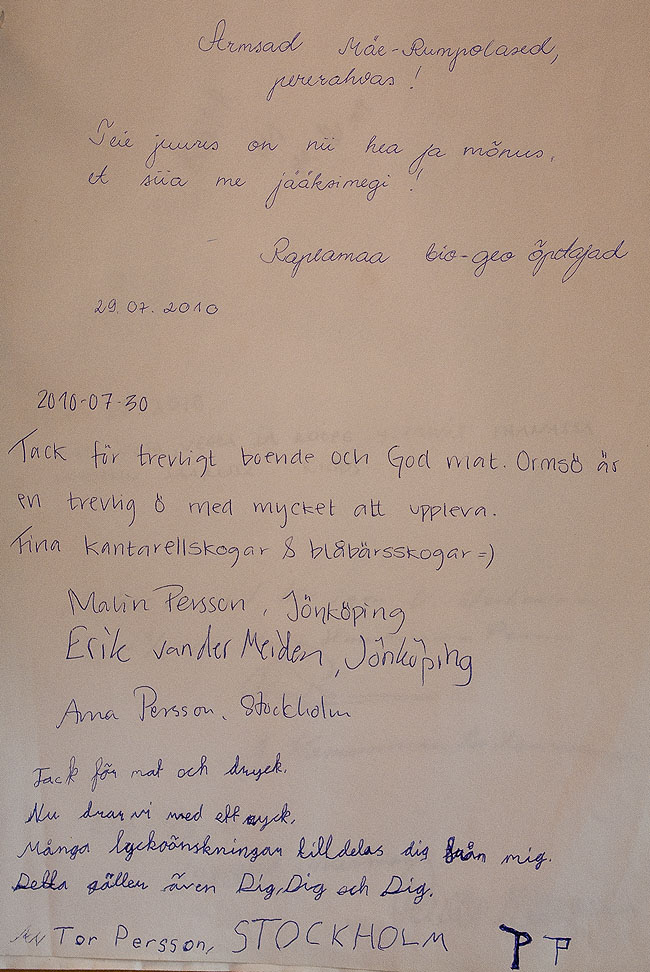 Armsad Mäe-Rumpolased,
pererahvas!
Teie juures on nii hea ja mõnus,
et siia me jääksimegi!
Raplamaa bio-geo õpetajad
29.07.2010
2010-07-30
Tack för trevligt boende och God mat. Ormsö är
en trevlig ö med mycket att uppleva.
Fina kantarellskogar & blåbärsskogar =)
Malin Persson, Jönköping
Erik van der Meiden, Jönköping
Anna Persson, Stockholm
Tack för mat och dryck.
Nu drar vi med ett ryck.
Många lyckoönskningar tilldelas dig från mig.
Detta gäller även Dig, Dig och Dig.
Tor Persson, STOCKHOLM